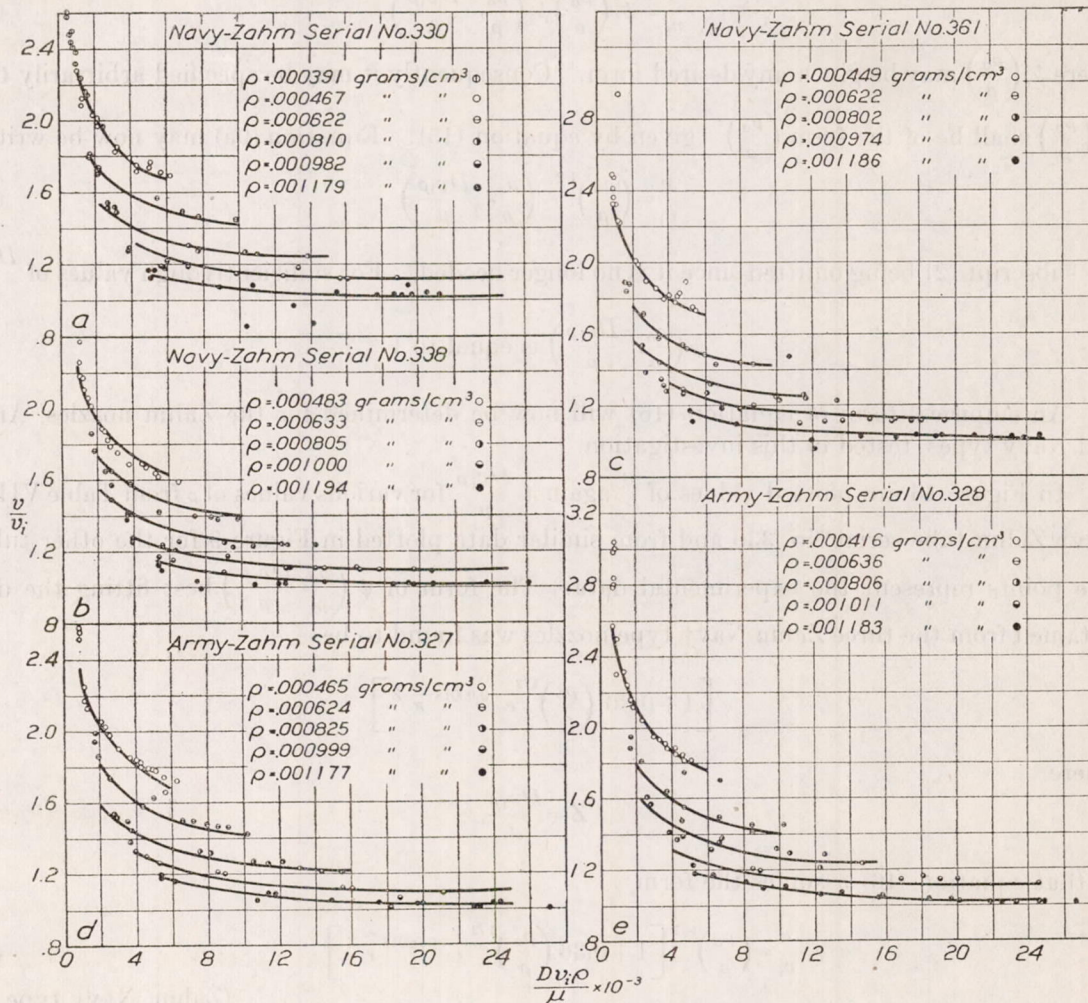 Navy-Zahm Serial No.330
ρ=.000391 grams/cm³ ○
ρ=.000467 " " ○
ρ=.000622 " "
ρ=.000811 " "
ρ=.000982 " "
ρ=.001179 " " ●
2.4
2.0
1.6
1.2
.8
a
Navy-Zahm Serial No.338
ρ=.000483 grams/cm³ ○
ρ=.000633 " "
ρ=.000805 " "
ρ=.001000 " "
ρ=.001194 " " ●
2.0
1.6
1.2
.8
b
v/vᵢ
Army-Zahm Serial No.327
ρ=.000465 grams/cm³ ○
ρ=.000624 " "
ρ=.000825 " "
ρ=.000999 " "
ρ=.001177 " " ●
2.4
2.0
1.6
1.2
.8
d
0 4 8 12 16 20 24
Navy-Zahm Serial No.361
ρ=.000449 grams/cm³ ○
ρ=.000622 " "
ρ=.000802 " "
ρ=.000974 " "
ρ=.001186 " " ●
2.8
2.4
2.0
1.6
1.2
.8
c
Army-Zahm Serial No.328
ρ=.000416 grams/cm³ ○
ρ=.000636 " "
ρ=.000806 " "
ρ=.001011 " "
ρ=.001183 " " ●
3.2
2.8
2.4
2.0
1.6
1.2
.8
e
0 4 8 12 16 20 24
Dvᵢρ/μ ×10⁻³